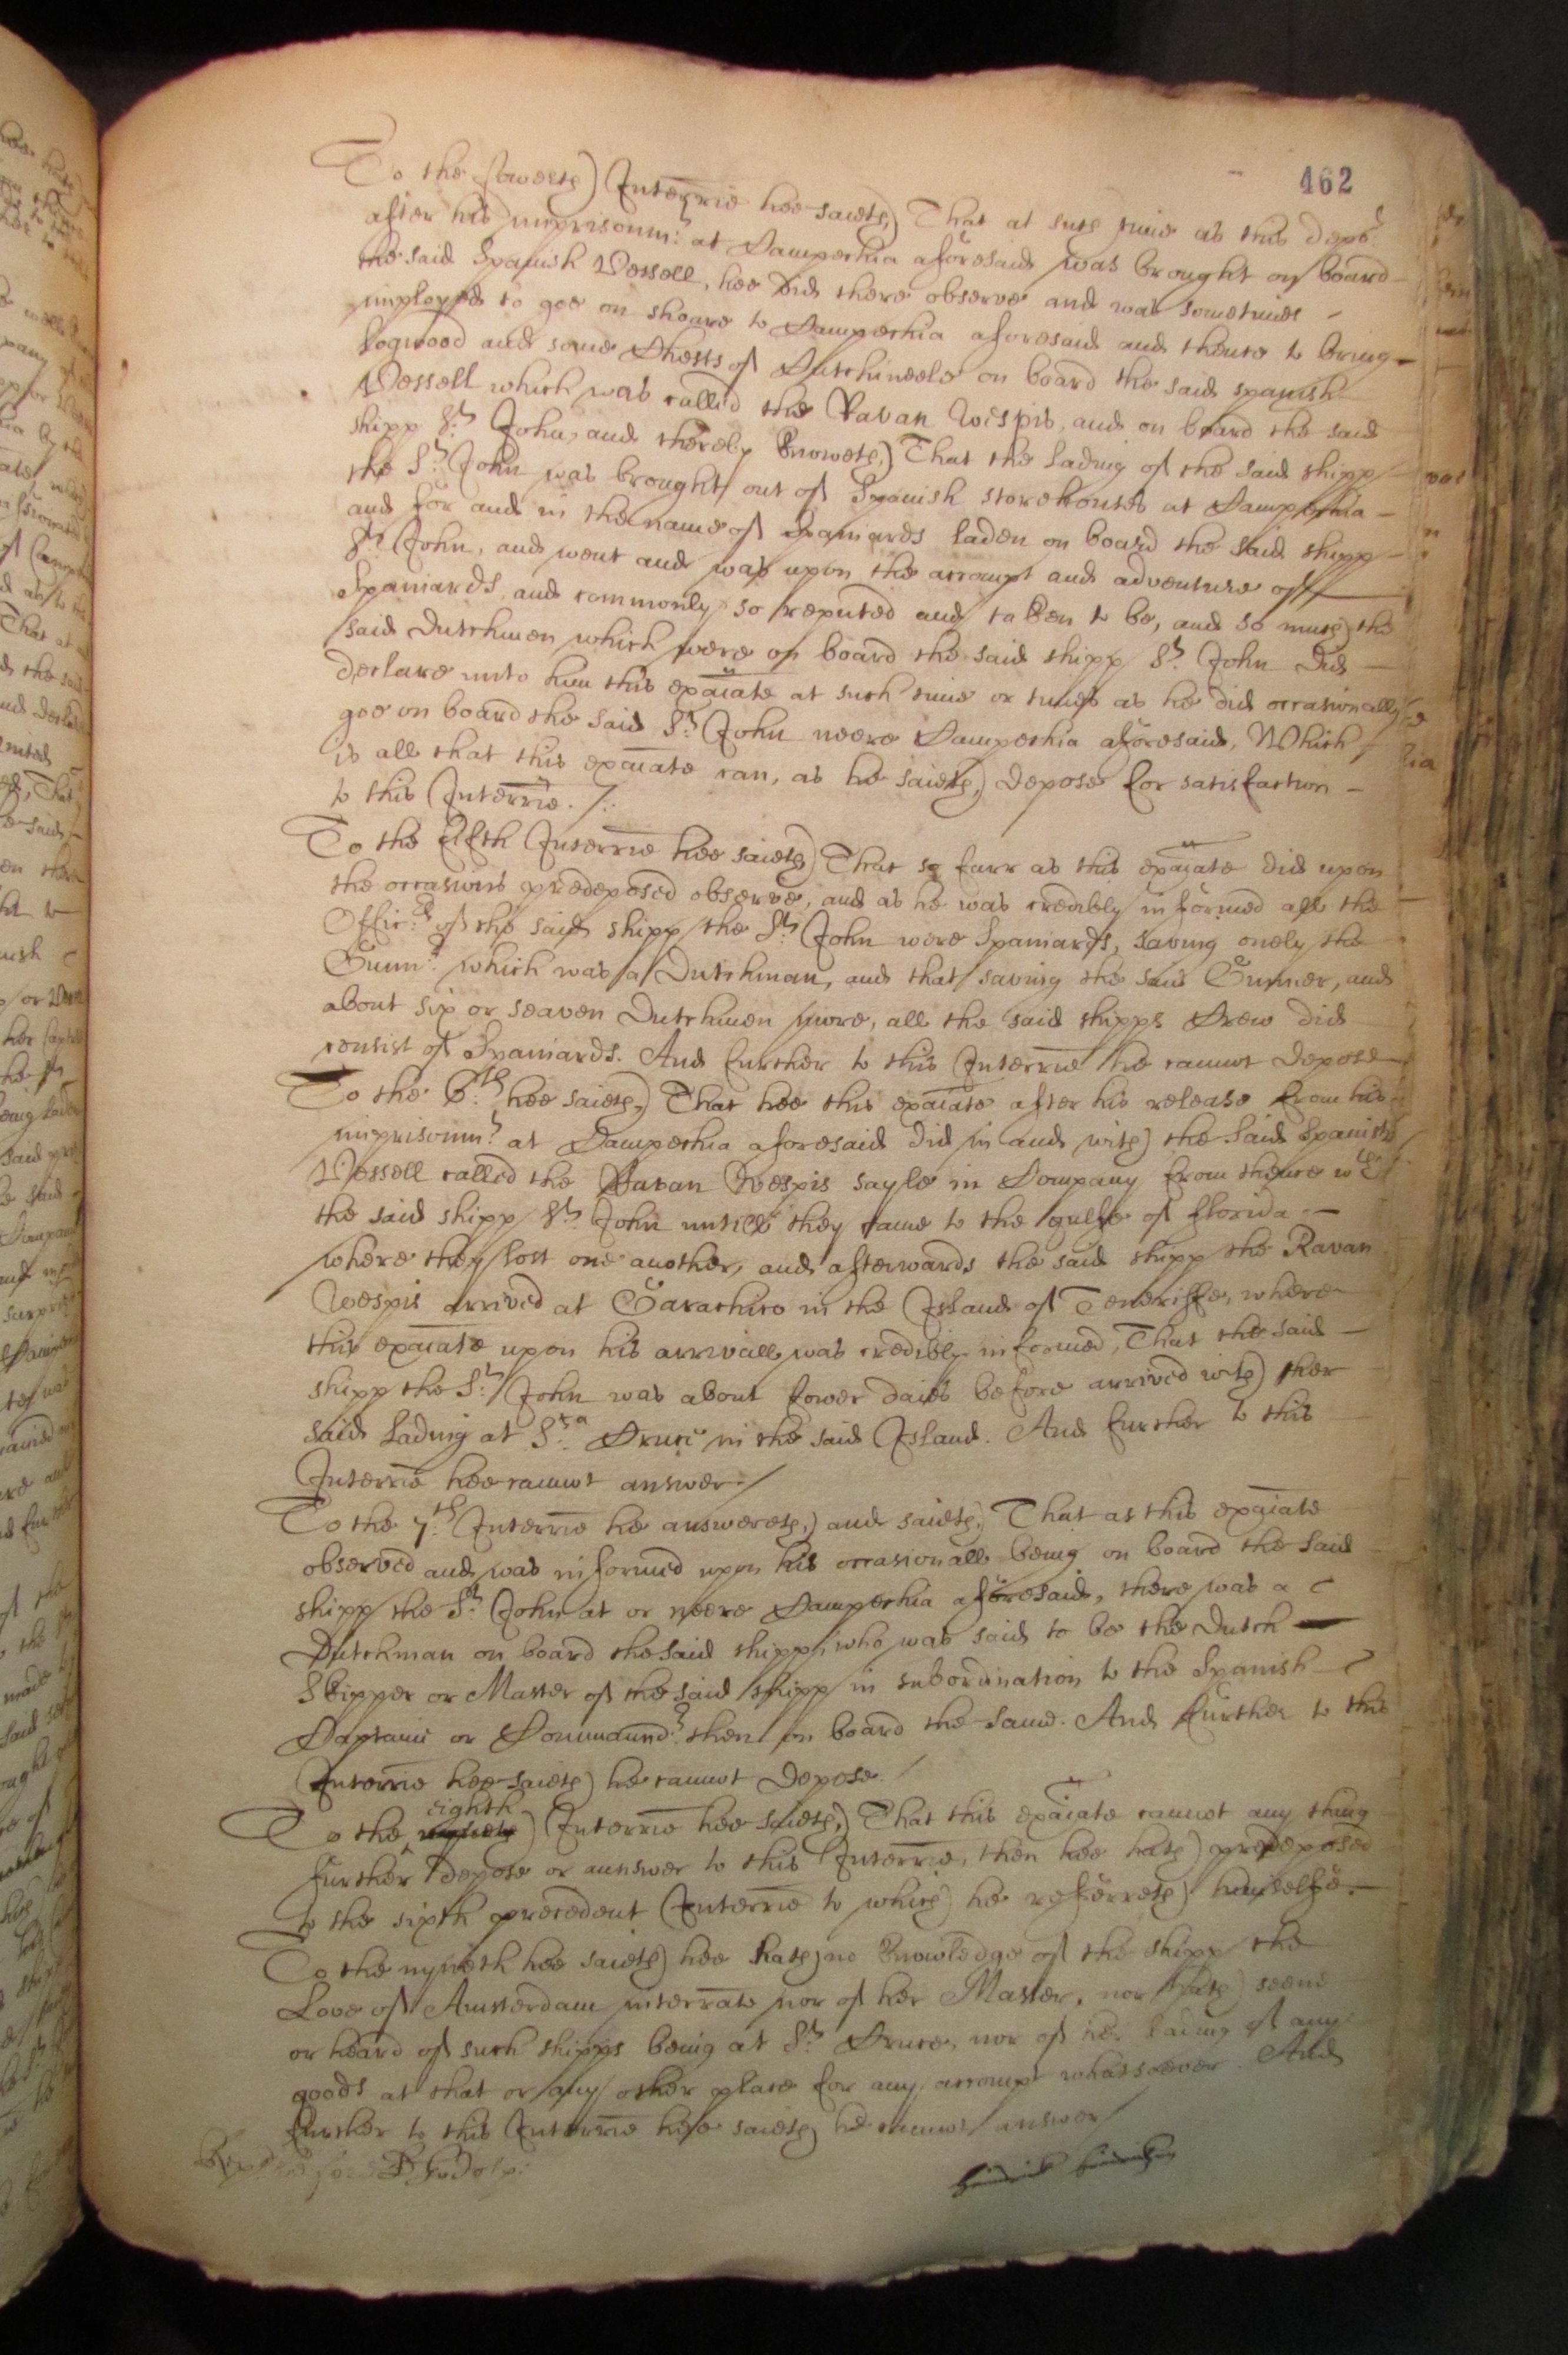 462
To the fowerth Interrie hee saieth, That at such time as this depot
after his imprisonmt: at Campechia aforesaid was brought on board
the said Spanish Vessell, hee did there observe and was sometimes
imployed to goe on shoare to Campechia aforesaid and thence to bring
Logwood and some Chests of Cutchineele on board the said spanish
Vessell which was called the Ravan Wespis, and on board the said
shipp St: John, and thereby knoweth, That the lading of the said shipp
the St: John was brought out of Spanish storehouses at Campechia
and for and in the name of Spaniards laden on board the said shipp
St: John, and went and was upon the accompt and adventure of
Spaniards, and commonly so reputed and taken to be, and so much the
said Dutchmen which were on board the said shipp St: John did
declare unto him this exaiate at such time or times as he did occasionally
goe on board the said St: John neere Campechia aforesaid, Which
is all that this exaiate can, as he saieth, depose for satisfaction
to this Interrie. /.
To the fifth Interrie hee saieth That so farr as this exaiate did upon
the occasions predeposed observe, and as he was credibly informed all the
Officrs: of the said shipp the St: John were Spaniards, saving onely the
Gunnr: which was a Dutchman, and that saving the said Gunner, and
about six or seaven Dutchmen more, all the said shipps Crew did
consist of Spaniards. And further to this Interrie he cannot depose
To the 6:th hee saieth, That hee this exaiate after his release from his
imprisonmt: at Campechia aforesaid did in and with the said Spanish
Vessell called the Ravan Wespis sayle in Company from thence wth
the said shipp St: John untill they came to the gulfe of florida
where they lost one another, and afterwards the said shipp the Ravan
Wespis arrived at Garachico in the Island of Teneriffe, where
this exaiate upon his arrivall was credibly informed, That the said
shipp the St: John was about fower daies before arrived with her
said lading at Sta: Cruce in the said Island. And further to this
Interrie hee cannot answer./
To the 7:th Interrie he answereth, and saieth, That as this exaiate
observed and was informed upon his occasionall being on board the said
shipp the St: John at or neere Campechia aforesaid, there was a
Dutchman on board the said shipp, who was said to be the Dutch
Skipper or Master of the said shipp in subordination to the Spanish
Captaine or Commaundr: then on board the same. And further to this
Interrie hee saieth he cannot depose /
To the eighth Interrie hee saieth, That this exaiate cannot any thing
further depose or aunswer to this Interrie, then hee hath predeposed
to the sixth precedent Interrie to which he referreth himselfe.
To the nyneth hee saieth hee hath no knowledge of the shipp the
Love of Amsterdam interrate nor of her Master, nor hath seene
or heard of such shipps being at St: Cruce, nor of her lading of any
goods at that or any other place for any accompt whatsoever. And
further to this Interrie hee saieth he cannot answer /